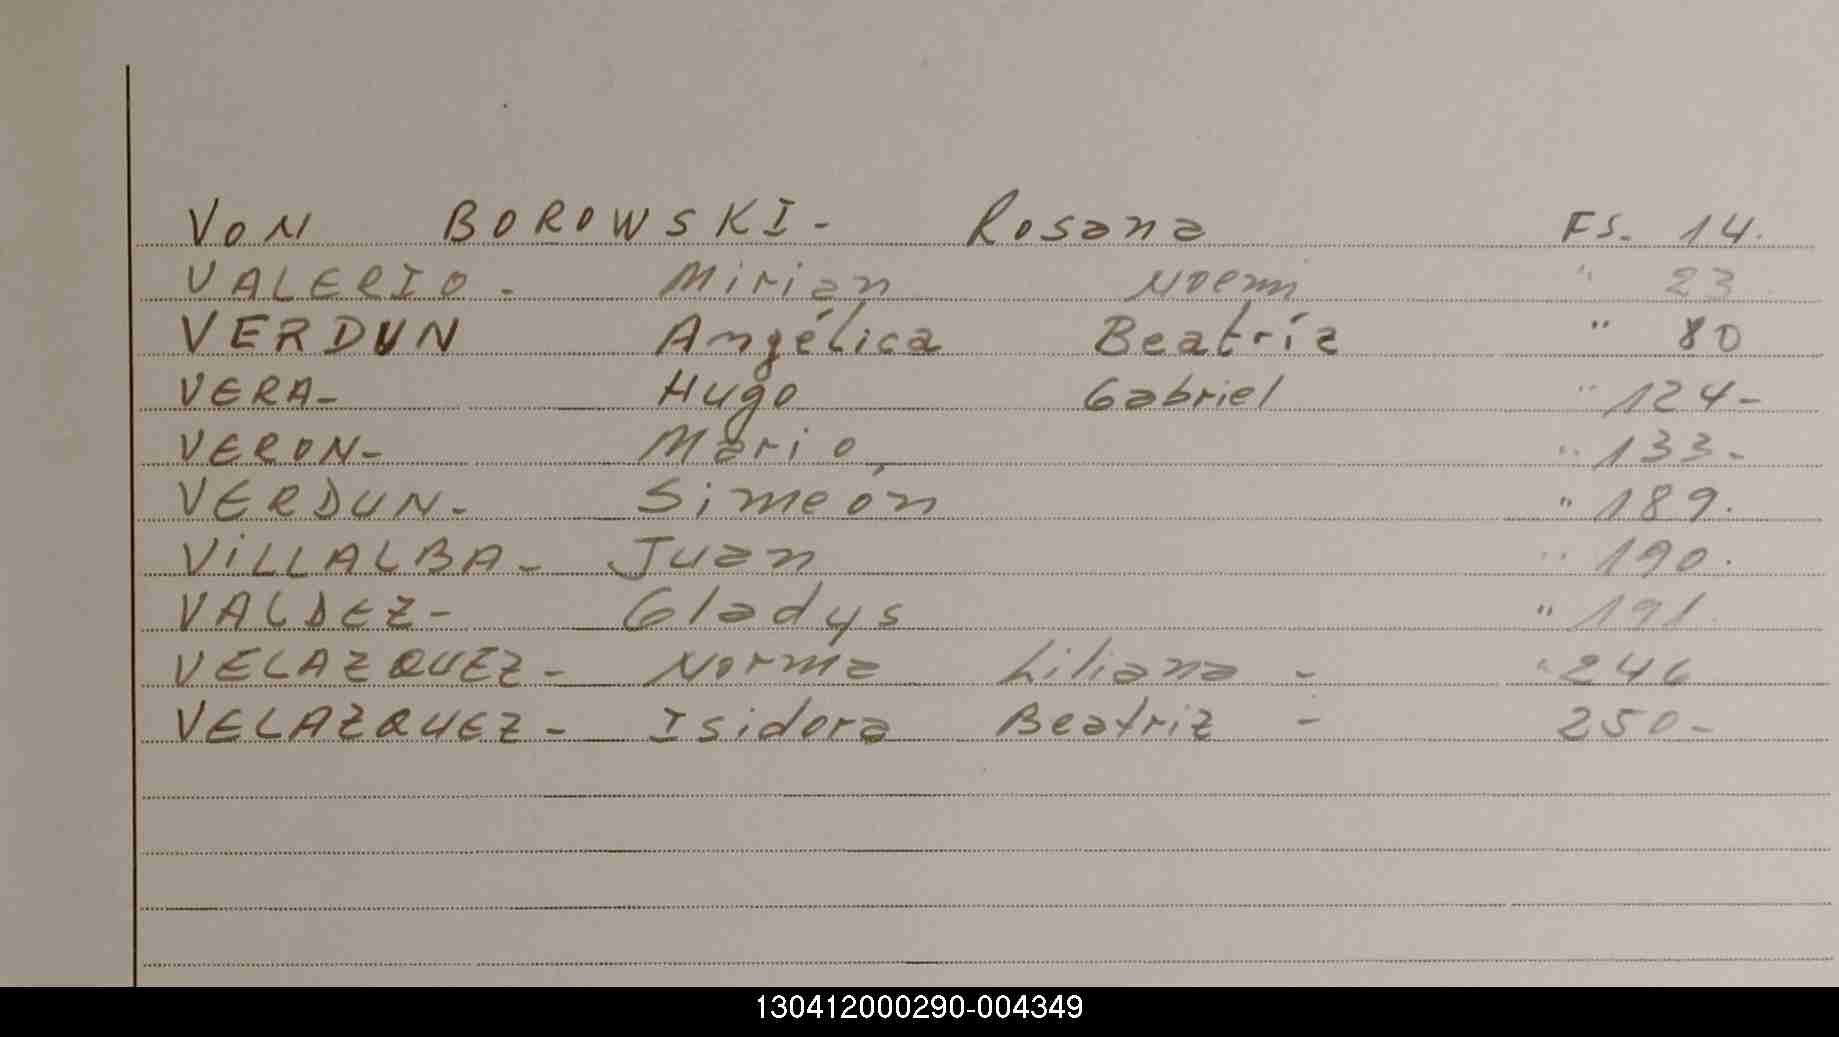 VON BOROWSKI- Rosana FS. 14.
VALERIO. Mirian Noemi " 23
VERDUN Angélica Beatríz " 80
VERA- Hugo Gabriel " 124-
VERON- Mario " 133-
VERDUN- Simeón " 189.
ViLLALBA- Juan " 190.
VALDEZ- Gladys " 191.
VELAZQUEZ- Norma Liliana - " 246
VELAZQUEZ- Isidora Beatriz - 250-
130412000290-004349